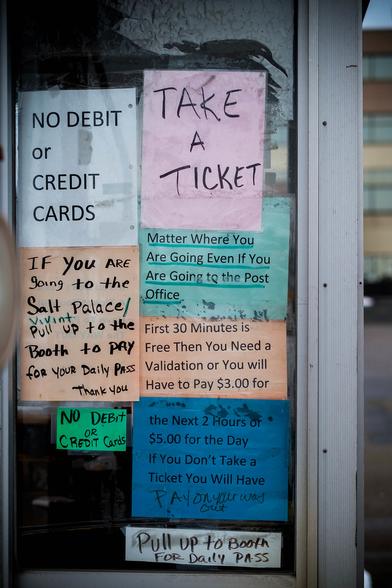 NO DEBIT
or
CREDIT
CARDS
TAKE
A
TICKET
Matter Where You
Are Going Even If You
Are Going to the Post
Office
First 30 Minutes is
Free Then You Need a
Validation or You will
Have to Pay $3.00 for
the Next 2 Hours or
$5.00 for the Day
If You Don't Take a
Ticket You Will Have
Pay on your way
out
IF You ARE
going to the
Salt Palace/
Vivint
Pull up to the
Booth to PAY
for your Daily Pass
Thank you
NO DEBIT
OR
CREDIT Cards
Pull up to Booth
FOR DAILY PASS